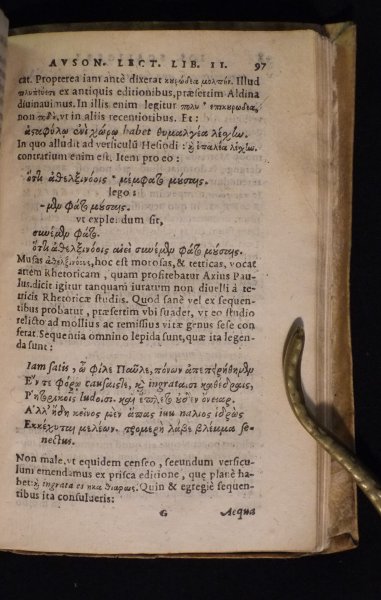 AVSON. LECT. LIB. II. 97
cat. Propterea iam antè dixerat κωμώδεα μολπήν. Illud
ex antiquis editionibus, præsertim Aldina
diuinauimus. In illis enim legitur
non vt in aliis recentioribus. Et:
habet θυμαλγέα λέσχην.
In quo alludit ad versiculũ Hesiodi:
contrarium enim est. Item pro eo:
ὅτι ἀθελξινόοις μέμφατο μούσαις.
lego:
-μὴ φάτο μούσαις.
vt explendum sit,
συνέμὴ φάτο.
ὅτι ἀθελξινόοις αἰεὶ συνέμὴ φάτο μούσαις.
Musas hoc est morosas, & tetricas, vocat
artem Rhetoricam, quam profitebatur Axius Pau-
lus. dicit igitur tanquam iuratum non diuelli à te-
tricis Rhetoricæ studiis. Quod sanè vel ex sequen-
tibus probatur, præsertim vbi suadet, vt eo studio
relicto ad mollius ac remissius vitæ genus sese con
ferat. Sequentia omnino lepida sunt, quæ ita legen-
da sunt:
Iam satis, ὦ φίλε Παῦλε, πόνων ἀπεπειρήθημεν
Ἔν τε φόρῳ causaisτε, καὶ ingrataισι καθέδραις,
Ῥητορικοῖς ludoισι. καὶ ἔπλετο οὐδὲν ὄνειαρ.
Ἀλλ' ἤδη κεῖνος μὲν ἅπας iuuεναλιος ἱδρὼς
Ἐκκέχυται μελέων. τρομερὴ λάβε βλέμμα se-
nectus.
Non male, vt equidem censeo, secundum versicu-
lum emendamus ex prisca editione, quæ planè ha-
bet: καὶ ingrata Quin & egregiè sequen-
tibus ita consulueris:
G Aequa